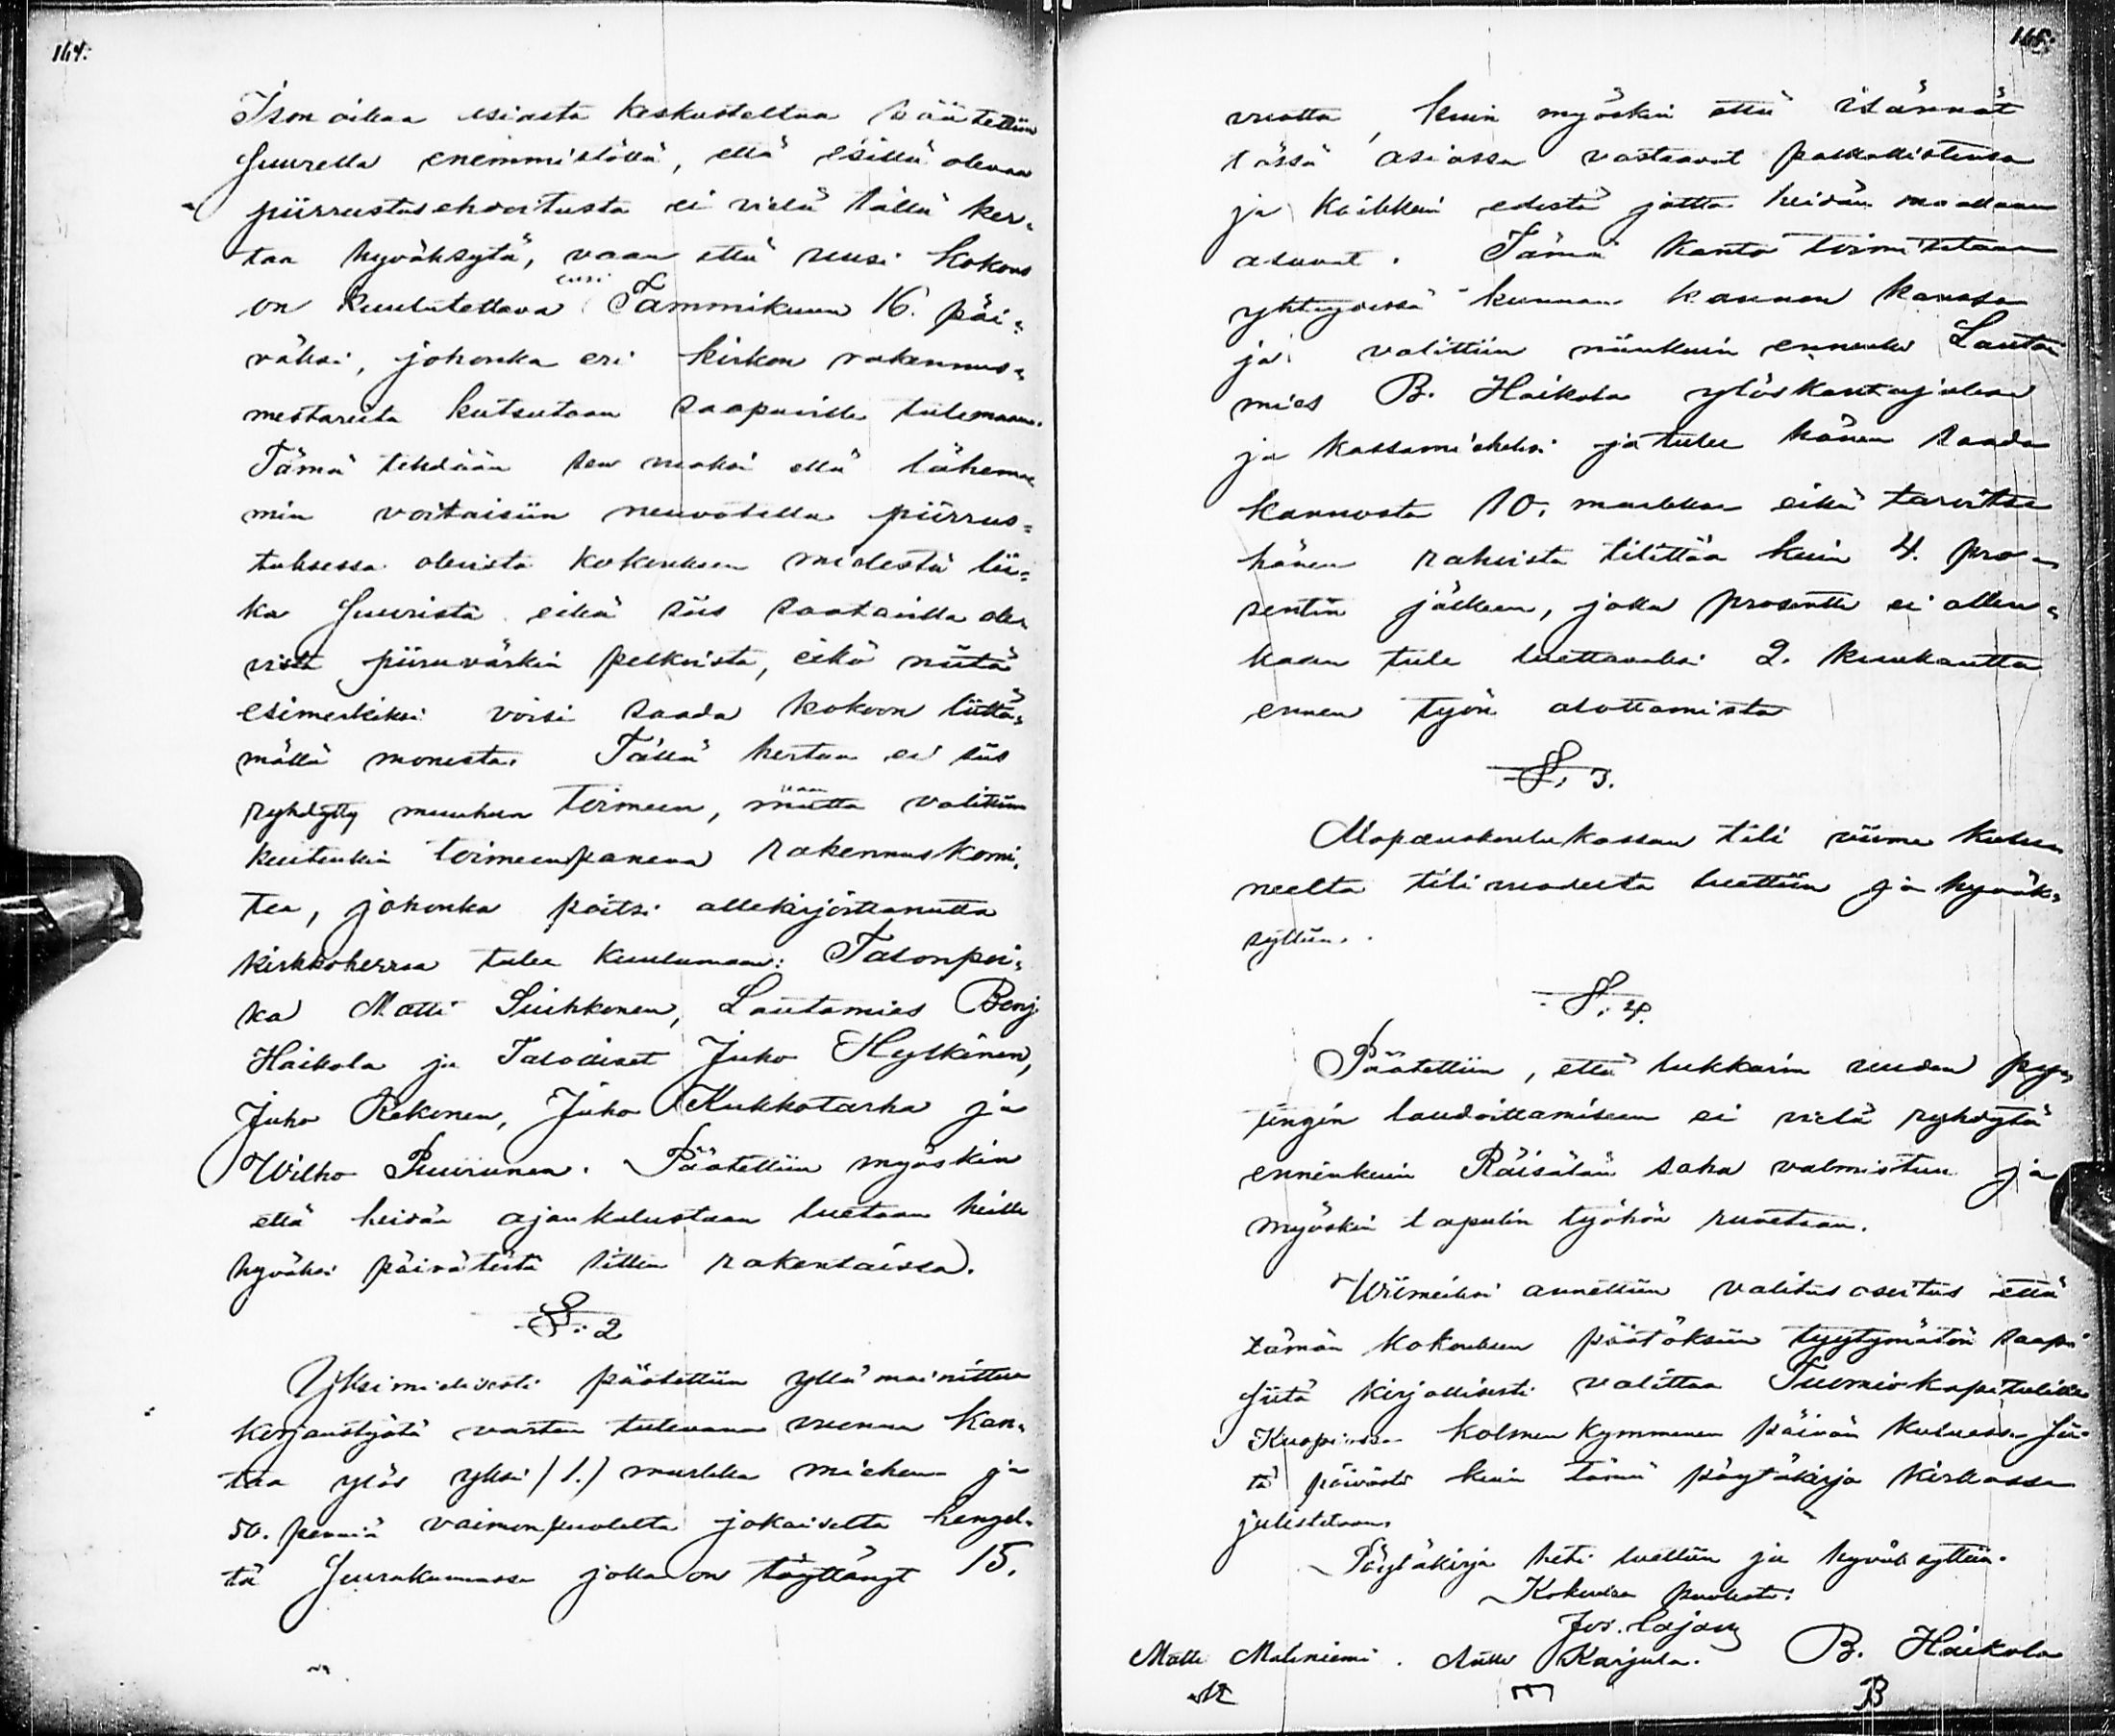 164.
Ison aikaa asiasta keskusteltua päätettiin
Suurella enemmistöllä, että esillä olevaa
piirrustusehdoitusta ei vielä tällä ker-
taa hyväksytä, vaan että uusi kokous
on kuulutettava ensi Tammikuun 16. päi-
väksi, johonka eri kirkon rakennus-
mestareita kutsutaan saapuville tulemaan.
Tämä tehdään sen vuoksi että lähem-
min voitaisiin neuvotella piirrus-
tuksessa olevista kokouksen mielestä lii-
ka Suurista eikä siis saatavilla ole-
vista piiruvärkin pelkoista, eikö niitä
esimerkiksi voisi saada kokoon liittä-
mällä monesta. Tällä kertaa ei siis
ryhdytty muuhun toimeen, vaan mutta valittiin
kuitenkin toimeenpaneva rakennuskomi-
tea, johonka paitsi allekirjoittanutta
kirkkoherraa tulee kuulumaan: Talonpoi-
ka Matti Siuhkonen, Lautamies Benj.
Haikola ja Talolliset Juho Hytkinen,
Juho Rekonen, Juho Kukkotarha ja
Wilho Puurunen. Päätettiin myöskin
että heidän ajankulustaan luetaan heille
hyväksi päivätöitä sitten rakentaissa.
§. 2
Yksimielisesti päätettiin yllämainittua
korjaustyötä varten tulevana vuonna kan-
taa ylös yksi /1./ markka miehen ja
50. penniä vaimonpuolelta jokaiselta hengel-
tä Seurakunnassa jolla on täyttänyt 15.
165.
vuotta, kuin myöskin että isännät
tässä asiassa vastaavat palkollistensa
ja kaikkein edestä jotka heidän maallaan
asuvat. Tämä kanto toimitetaan
yhteydessä kunnan kannon kanssa
ja valittiin niinkuin ennenkin Lauta
mies B. Haikola ylöskantajaksi
ja kassamieheksi ja tulee hänen saada
kannosta 10. markkaa eikä tarvitse
hänen rahoista tilittää kuin 4. pro-
sentin jälkeen, jolla prosentti ei allen-
kaan tule luettavaksi 2. kuukautta
ennen työn alottamista
§. 3.
Alapauskoulukassan tili viime kulu-
neelta tilivuodesta luettiin ja hyväk-
syttiin.
§. 4.
Päätettiin, että lukkarin uuden pyy-
tingin laudoittamiseen ei vielä ryhdytä
ennenkuin Räisälän saha valmistuu ja
myöskin tapulin työhön ruvetaan.
Wiimeiksi annettiin valitusosoitus että
tämän kokouksen päätöksiin tyytymätön saapi
Siitä kirjallisesti valittaa Tuomiokapituliin
Kuopiossa kolmenkymmenen päivän kuluessa Sii-
tä päivästä kuin tämä pöytäkirja kirkossa
julistetaan.
Pöytäkirja heti luettiin ja hyväksyttiin.
Kokouksen puolesta:
Jos. Cajan
Matti Maliniemi. Antti Karjula. B. Haikola
B